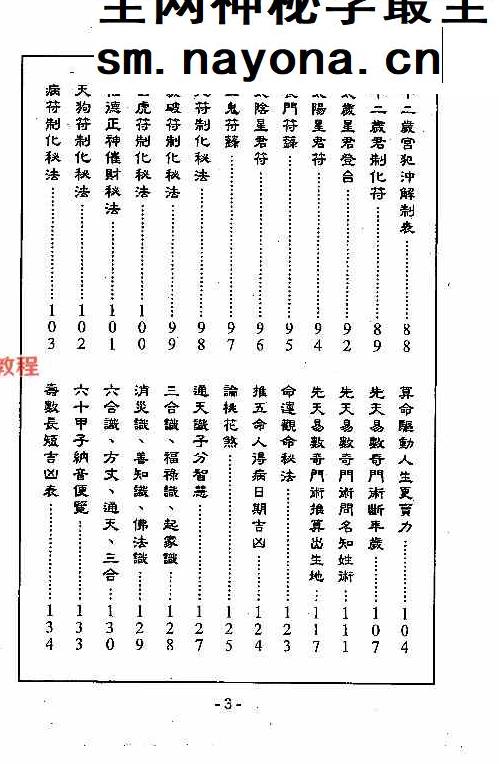 全网神秘学最全
sm.nayona.cn
二歲宮犯沖解制表……88
二歲君制化符……89
歲星君登台……92
陽星君符……94
門符籙……95
陰星君符……96
鬼符籙……97
符制化秘法……98
破符制化秘法……99
虎符制化秘法……100
德正神催財秘法……101
天狗符制化秘法……102
病符制化秘法……103
教程
算命驅動人生更賣力……104
先天易數奇門術斷年歲……107
先天易數奇門術問名知姓術……111
先天易數奇門術推算出生地……117
命運觀命秘法……123
推五命人得病日期吉凶……124
論桃花煞……125
通天識子分智慧……127
三合識、福祿識、起家識……128
消災識、善知識、佛法識……129
六合識、方丈、通天、三合……130
六十甲子納音便覽……133
壽數長短吉凶表……134
-3-